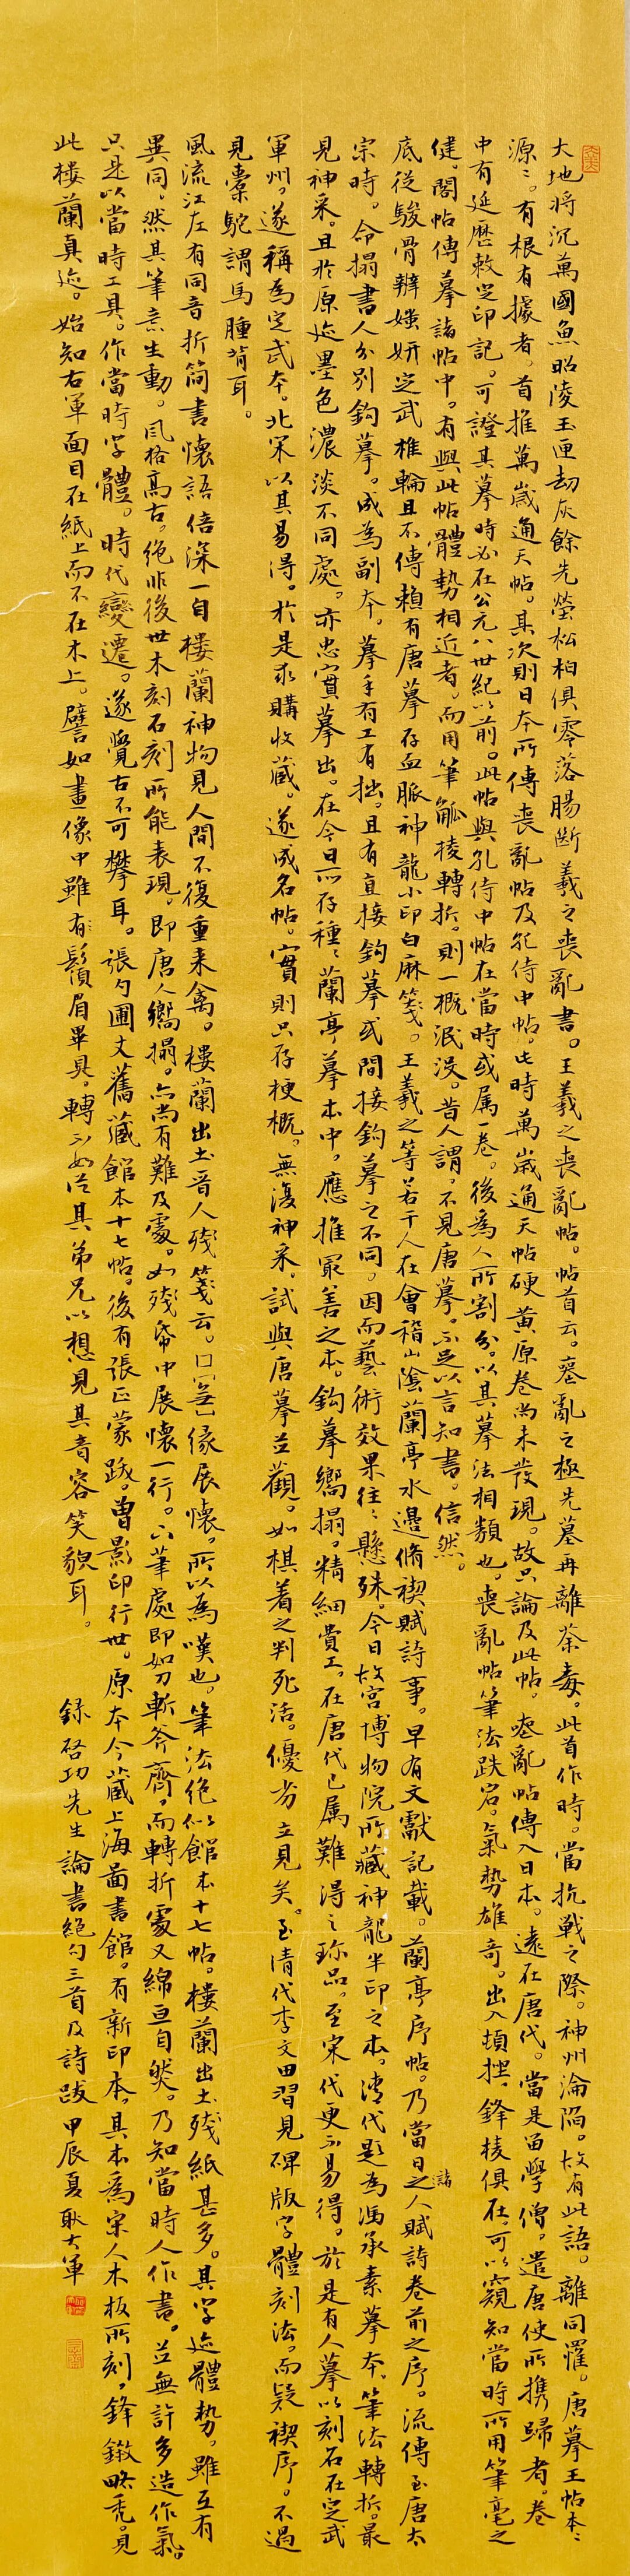 大地將沉萬國魚昭陵玉匣劫灰餘先塋松柏俱零落腸斷羲之喪亂書。王羲之喪亂帖。帖首云。喪亂之極先墓再離荼毒。此首作時。當抗戰之際。神州淪陷。故有此語。離同罹。唐摹王帖本〻
源〻。有根有據者。首推萬歲通天帖。其次則日本所傳喪亂帖及孔侍中帖。此時萬歲通天帖硬黃原卷尚未發現。故只論及此帖。喪亂帖傳入日本。遠在唐代。當是留學僧。遣唐使所携歸者。卷
中有延歷敕定印記。可證其摹時必在公元八世紀以前。此帖與孔侍中帖在當時或屬一卷。後為人所割分。以其摹法相類也。喪亂帖筆法跌宕。氣勢雄奇。出入頓挫。鋒棱俱在。可以窺知當時所用筆毫之
健。閣帖傳摹諸帖中。有與此帖體勢相近者。而用筆觚棱轉折。則一概泯沒。昔人謂。不見唐摹。不足以言知書。信然。
底從駿骨辨媸妍定武椎輪且不傳賴有唐摹存血脈神龍小印白麻箋。王羲之等若干人在會稽山陰蘭亭水邊脩禊賦詩事。早有文獻記載。蘭亭序帖。乃當日諸人賦詩卷前之序。流傳至唐太
宗時。命搨書人分別鈎摹。成為副本。摹手有工有拙。且有直接鈎摹或間接鈎摹之不同。因而藝術效果往〻懸殊。今日故宮博物院所藏神龍半印之本。清代題為馮承素摹本。筆法轉折。最
見神采。且於原迹墨色濃淡不同處。亦忠實摹出。在今日所存種〻蘭亭摹本中。應推最善之本。鈎摹嚮搨。精細費工。在唐代已屬難得之珍品。至宋代更不易得。於是有人摹以刻石在定武
軍州。遂稱為定武本。北宋以其易得。於是求購收藏。遂成名帖。實則只存梗概。無復神采。試與唐摹並觀。如棋着之判死活。優劣立見矣。至清代李文田習見碑版字體刻法。而疑禊序。不過
見橐駝謂馬腫背耳。
風流江左有同音折簡書懷語倍深一自樓蘭神物見人間不復重來禽。樓蘭出土晉人殘箋云。口〔無〕緣展懷。所以為嘆也。筆法絕似館本十七帖。樓蘭出土殘紙甚多。其字迹體勢。雖互有
異同。然其筆意生動。風格高古。絕非後世木刻石刻所能表現。即唐人嚮搨。亦尚有難及處。如殘帋中展懷一行。下筆處即如刀斬斧齊。而轉折處又綿亘自然。乃知當時人作書。並無許多造作氣。
只是以當時工具。作當時字體。時代變遷。遂覺古不可攀耳。張勺圃丈舊藏館本十七帖。後有張正蒙跋。曾影印行世。原本今藏上海圖書館。有新印本。其本為宋人木板所刻。鋒鎩略禿。見
此樓蘭真迹。始知右軍面目在紙上而不在木上。譬如畫像中雖有鬚眉畢具。轉不如從其弟兄以想見其音容笑貌耳。 録啓功先生論書絕句三首及詩跋 甲辰夏耿大軍